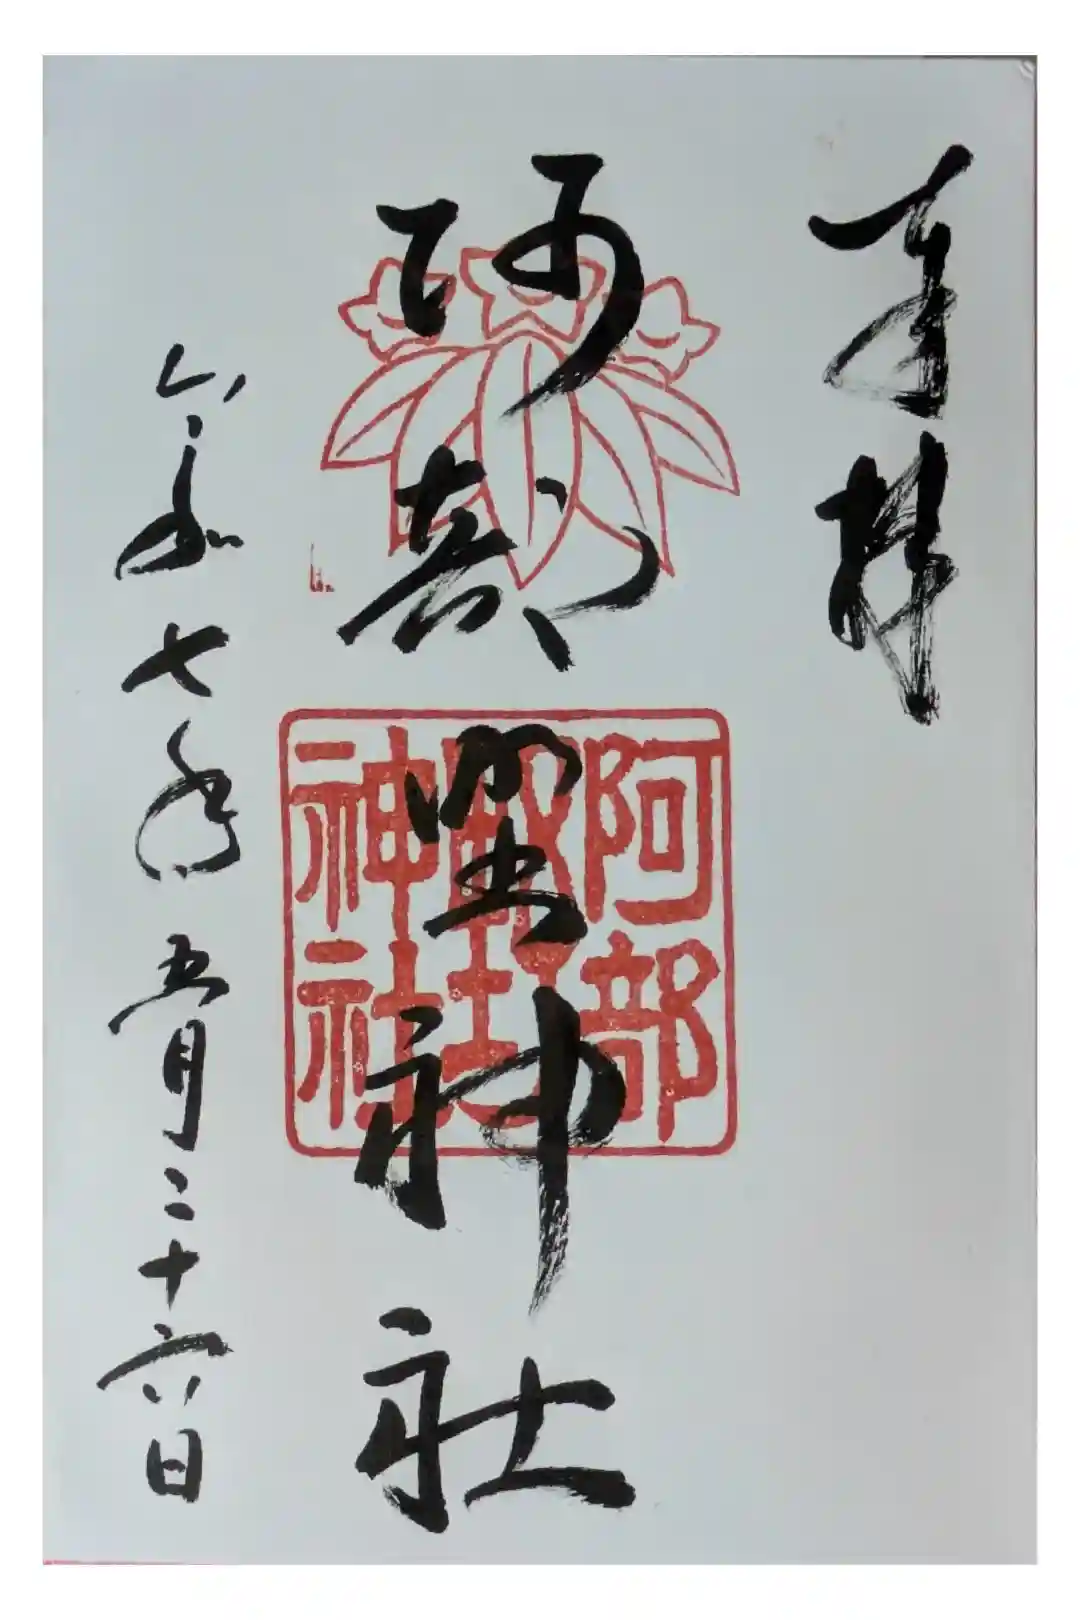 奉拝
阿部野神社
令和七年五月二十六日
阿部
野
神社